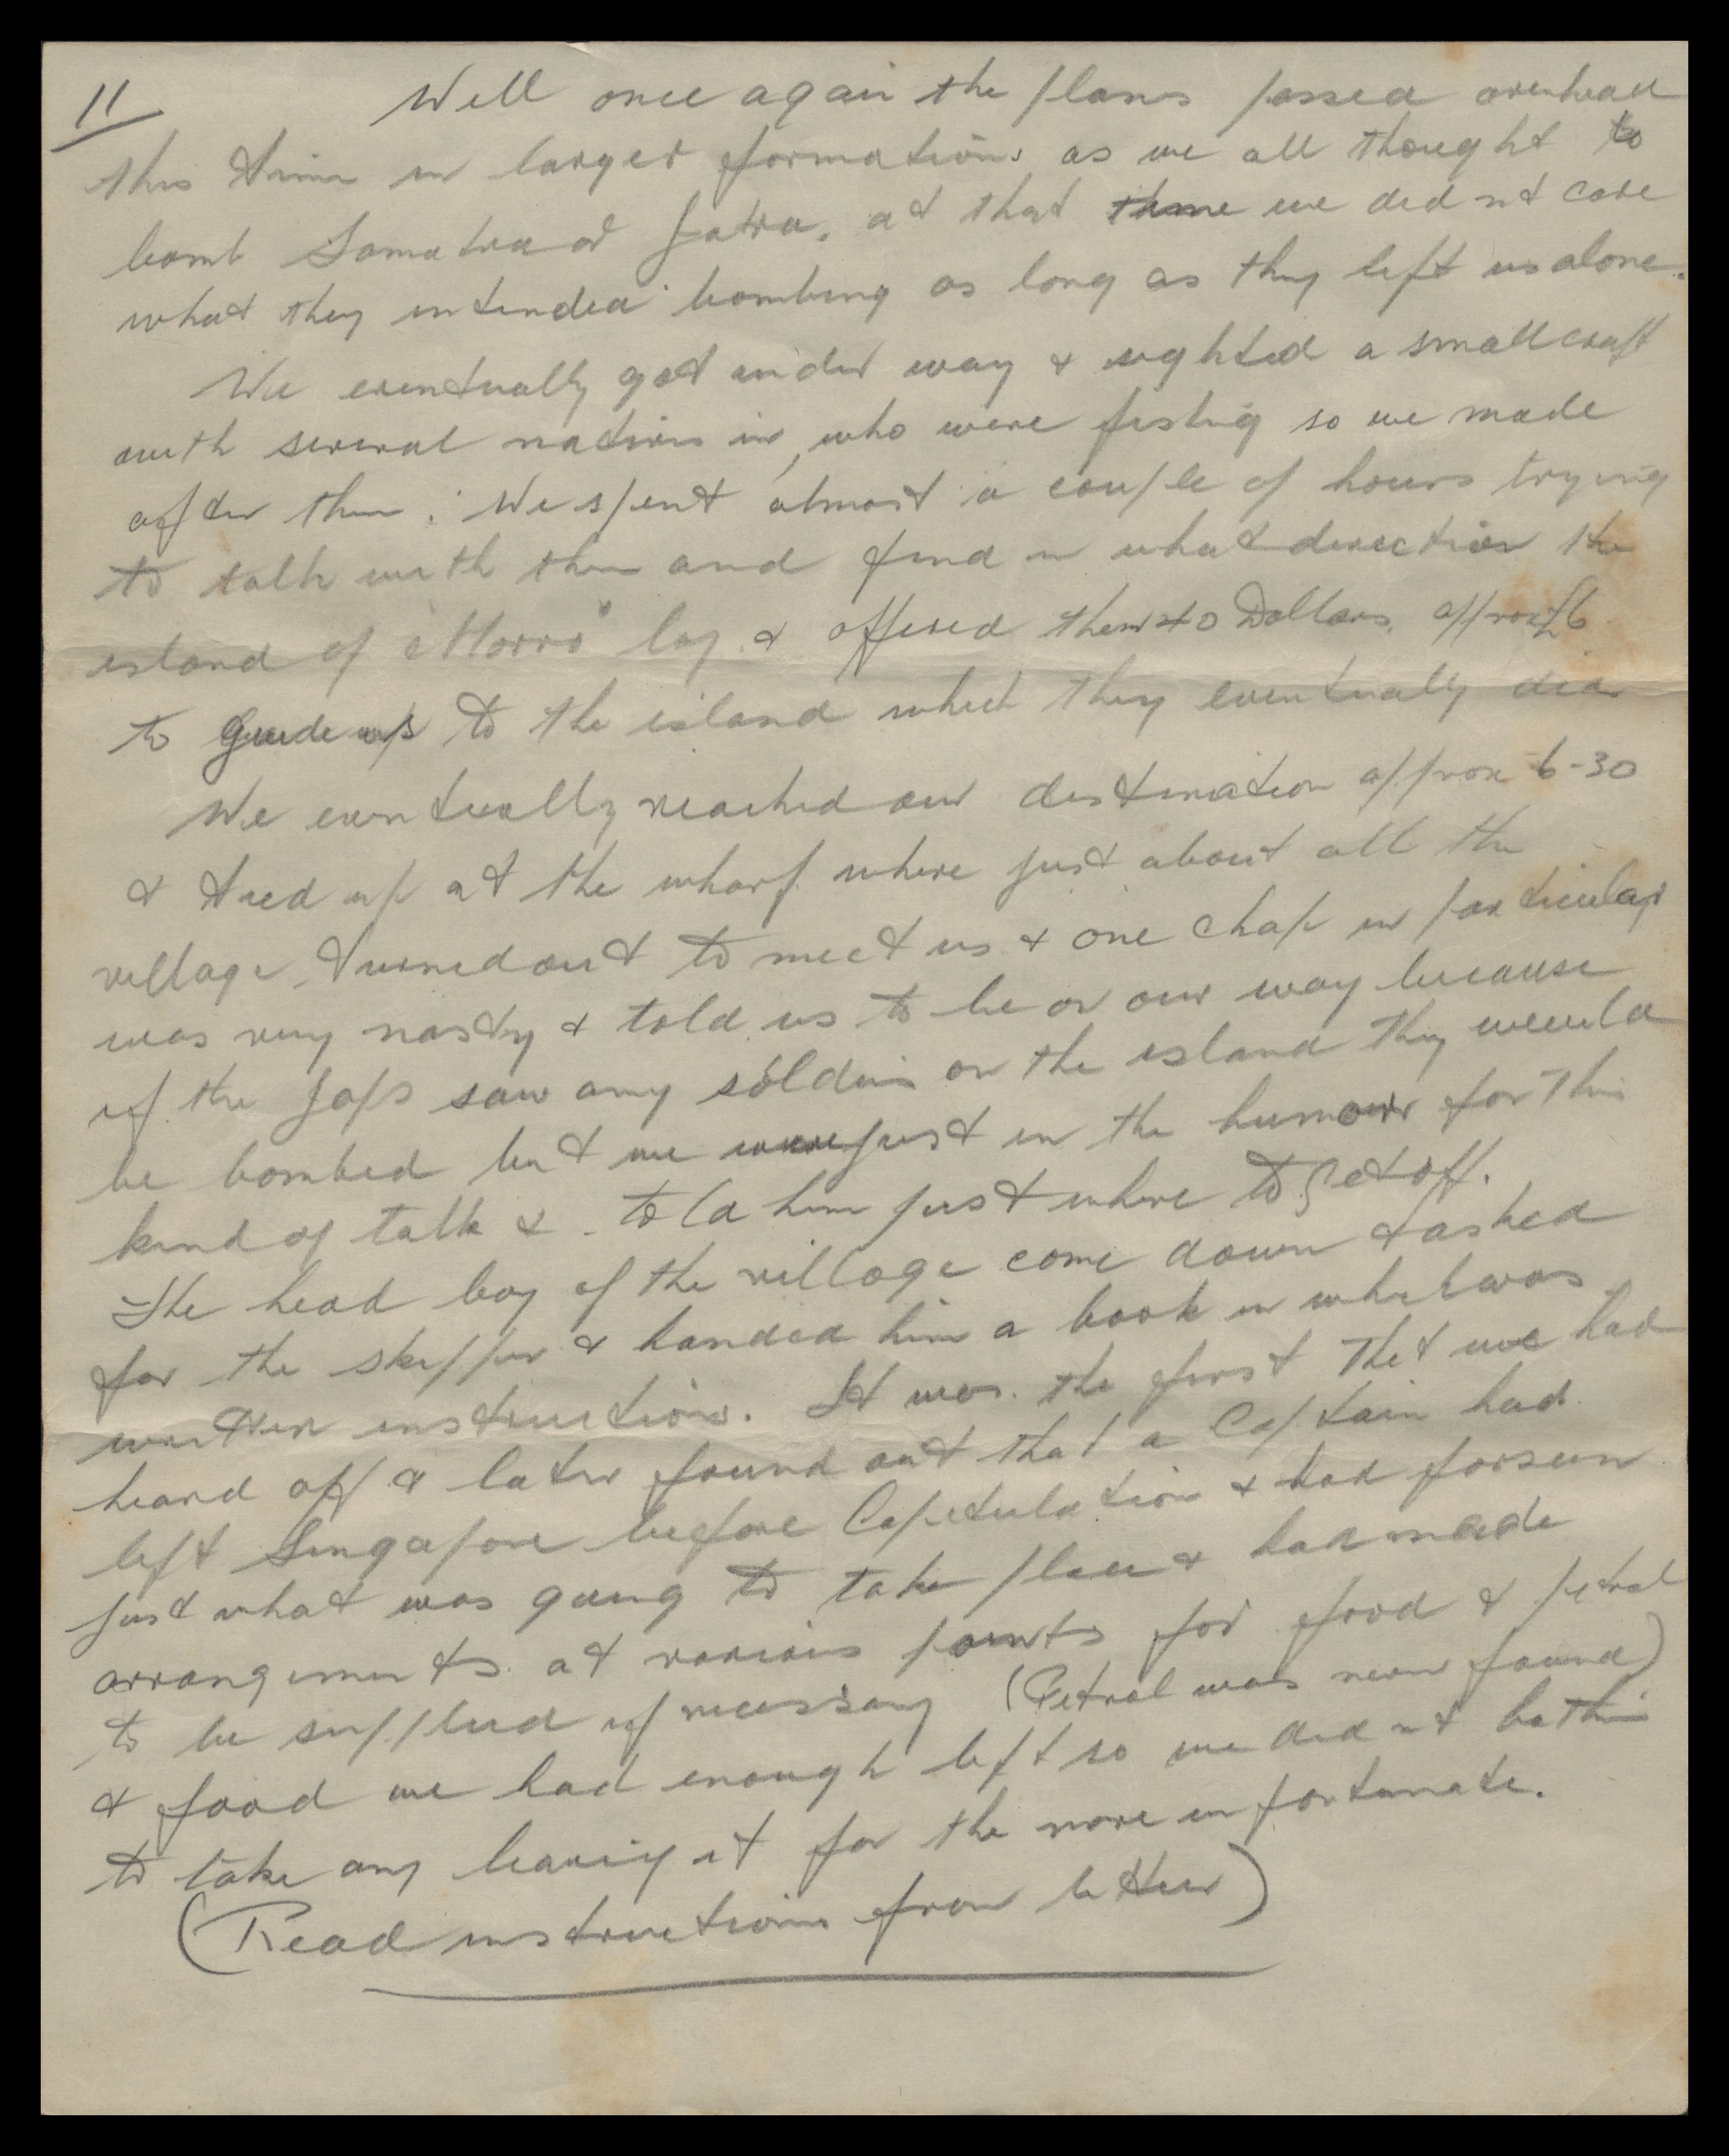 11 Well once again the planes passed overhead
this time in larger formations as we all thought to
bomb Somatra or Jatva. at that time we did nt care
what they intended bombing as long as they left us alone.
We eventually got under way & sighted a small craft
with several natives in, who were fishing so we made
after them. We spent almost a couple of hours trying
to talk with them and find in what direction the
island of "Morro" lay. & offered them 40 Dollars, approx £6
to guide us to the island which they eventually did
We eventually reached our destination approx 6-30
& tied up at the wharf where just about all the
village turned out to meet us & one chap in particular
was very nasty & told us to be on our way because
if the Japs saw any soldiers on the island they would
be bombed but we were just in the humour for this
kind of talk & told him just where to get off.
The head boy of the village come down & asked
for the skipper & handed him a book in what was
written instructions. It was the first that we had
heard off & later found out that a Captain had
left Singapore before Capetulation & had forseen
just what was going to take place & had made
arrangements at various points for food & petrol
to be supplied if necessary (Petrol was never found)
& food we had enough left so we did nt bother
to take any leaving it for the more unfortunate.
(Read instructions from letter)